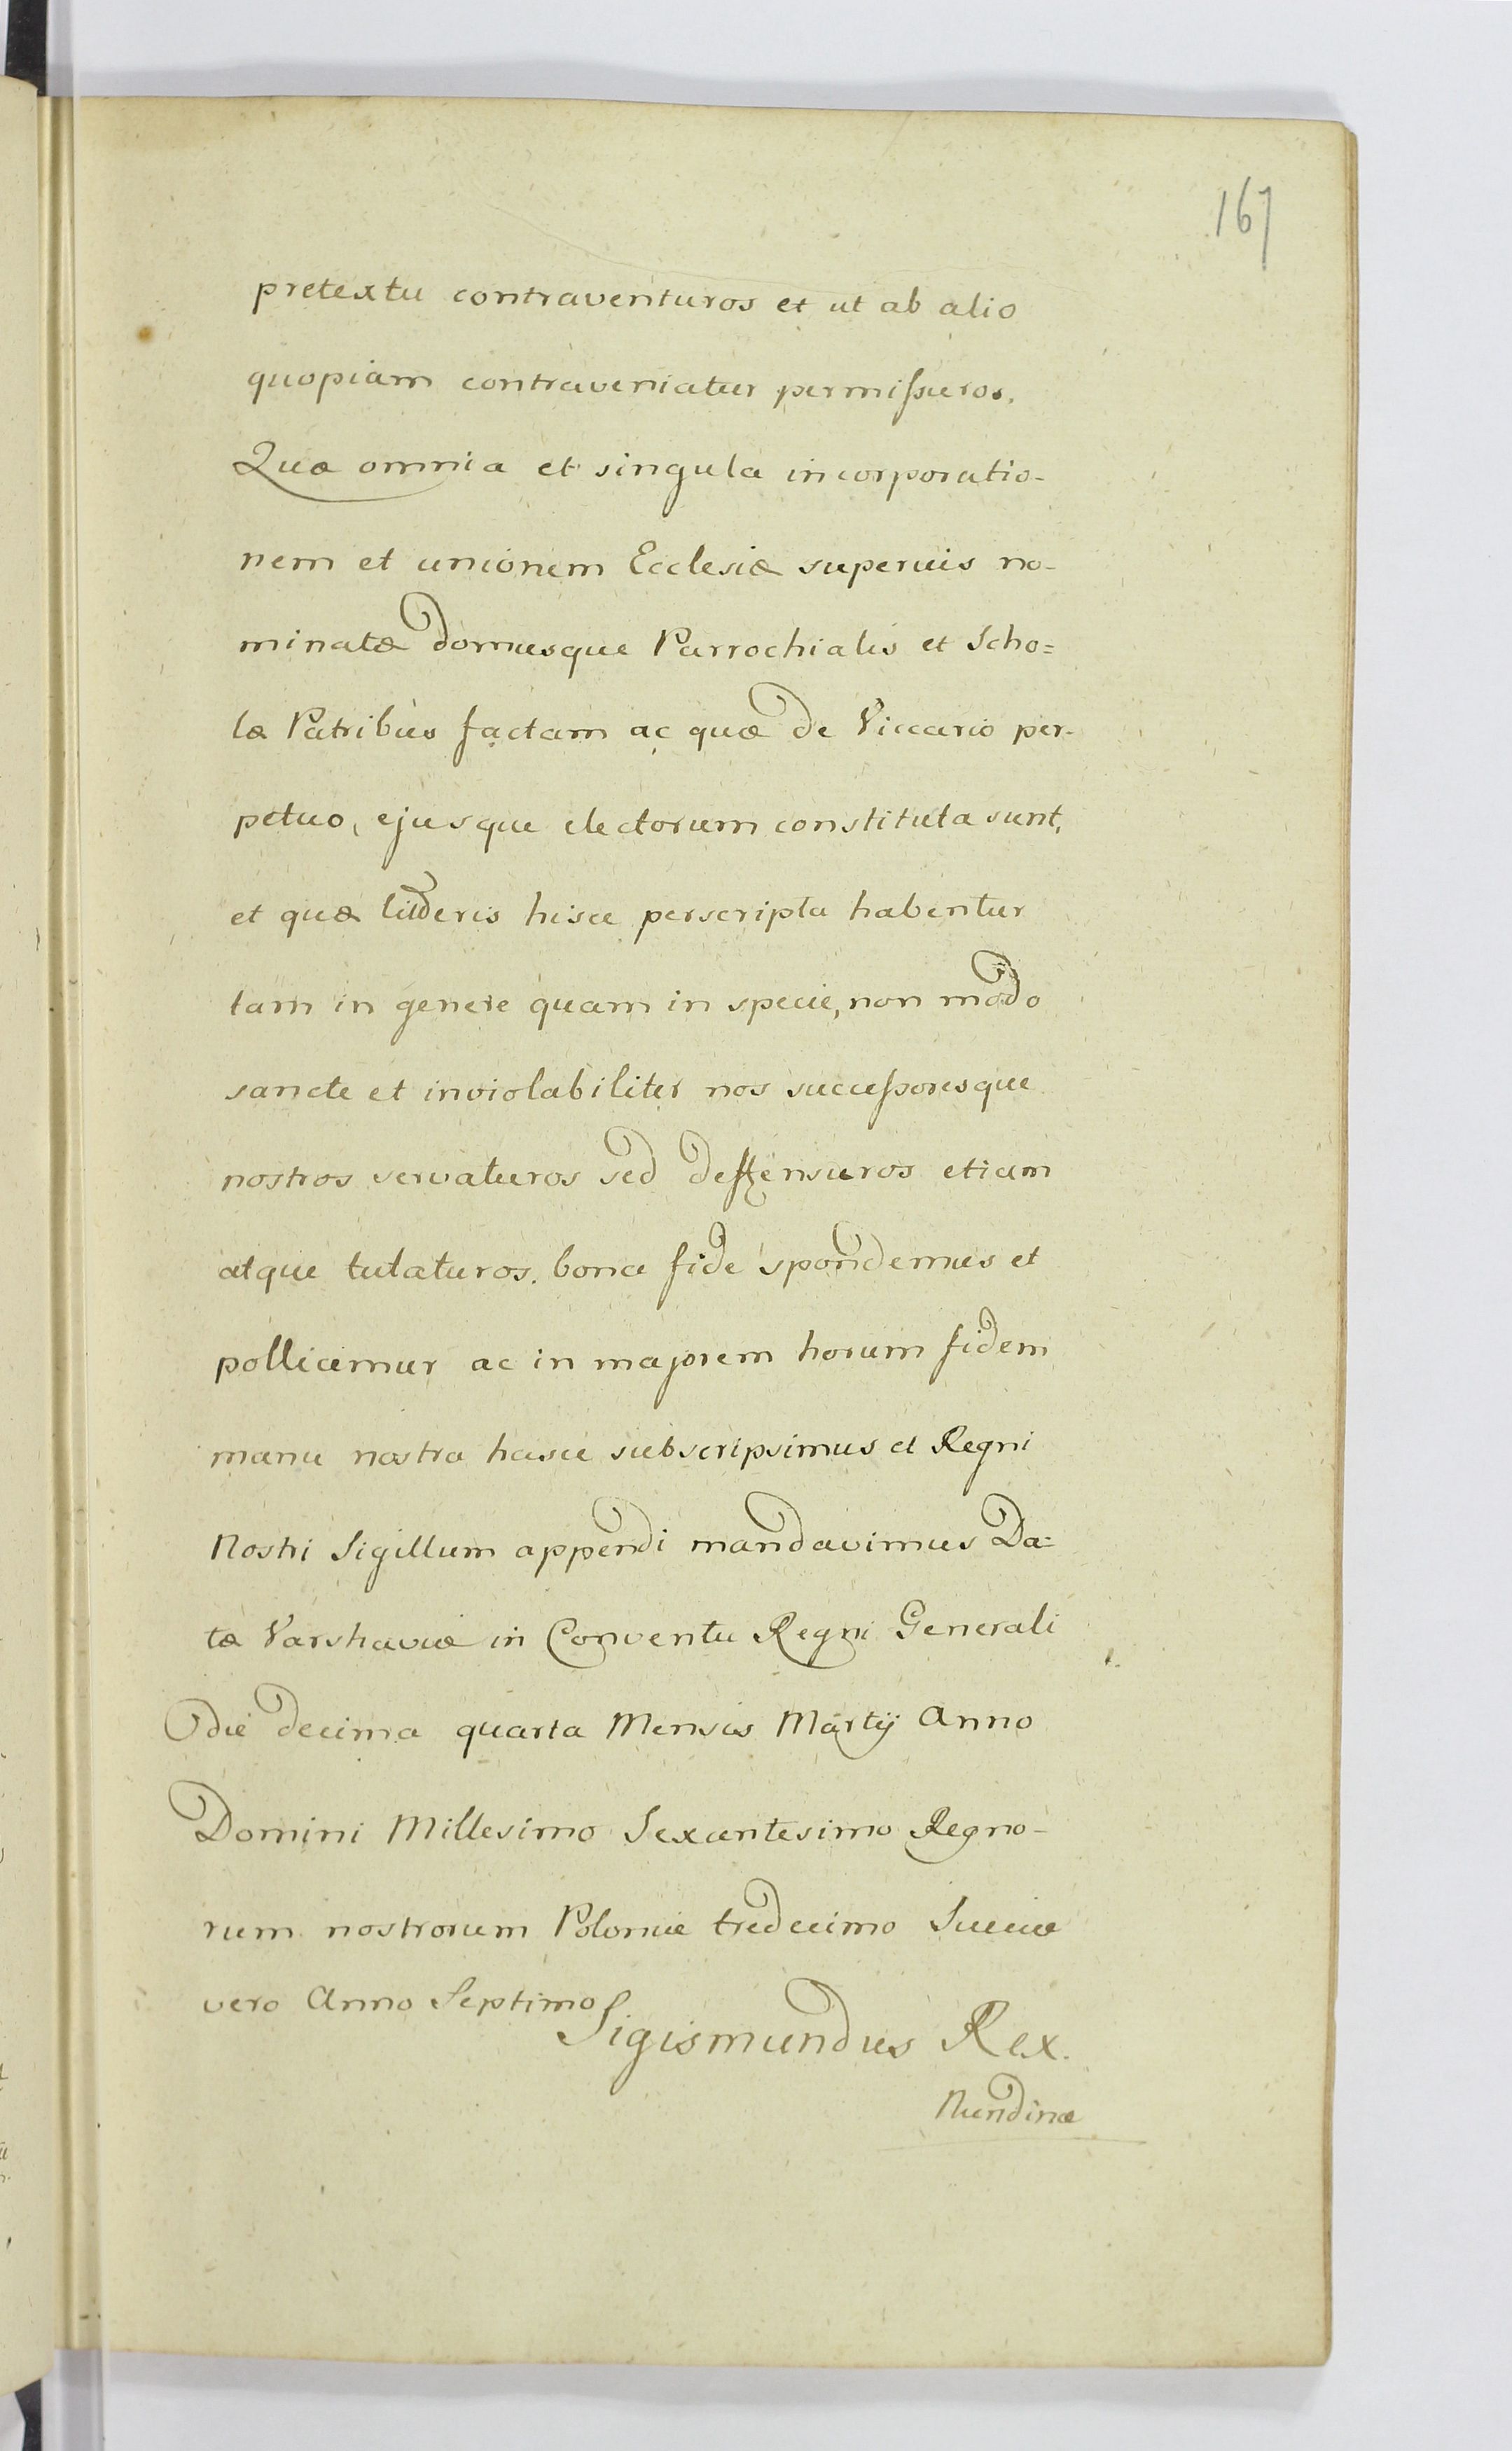 167
pretextu contraventuros et ut ab alio
quopiam contraveniatur permiſsuros.
Quæ omnia et singula incorporatio-
nem et unionem Ecclesiæ superius no-
minatæ domusque Parrochialis et Scho=
læ Patribus factam ac quæ de Viccario per-
petuo, ejusque electorum constituta sunt,
et quæ litteris hisce perscripta habentur
tam in genere quam in specie, non modo
sancte et inviolabiliter nos succeſsoresque
nostros servaturos sed deffensuros etiam
atque tutaturos. bona fide spondemus et
pollicemur ac in majorem horum fidem
manu nostra hasce subscripsimus et Regni
Nostri Sigillum appendi mandavimus Da=
tæ Varshaviæ in Conventu Regni Generali
die decima quarta Mensis Martij Anno
Domini Millesimo Sexcentesimo Regno-
rum nostrorum Poloniæ tredecimo Sueciæ
vero Anno Septimo
Sigismundus Rex.
Nundinæ